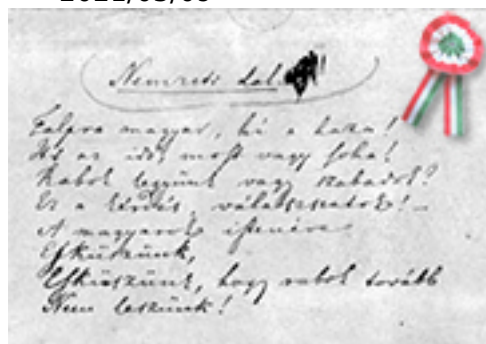 Nemzeti dal
Talpra magyar, hí a haza!
Itt az idő, most vagy soha!
Rabok legyünk vagy szabadok?
Ez a kérdés, válaszszatok! –
A magyarok istenére
Esküszünk,
Esküszünk, hogy rabok tovább
Nem leszünk!